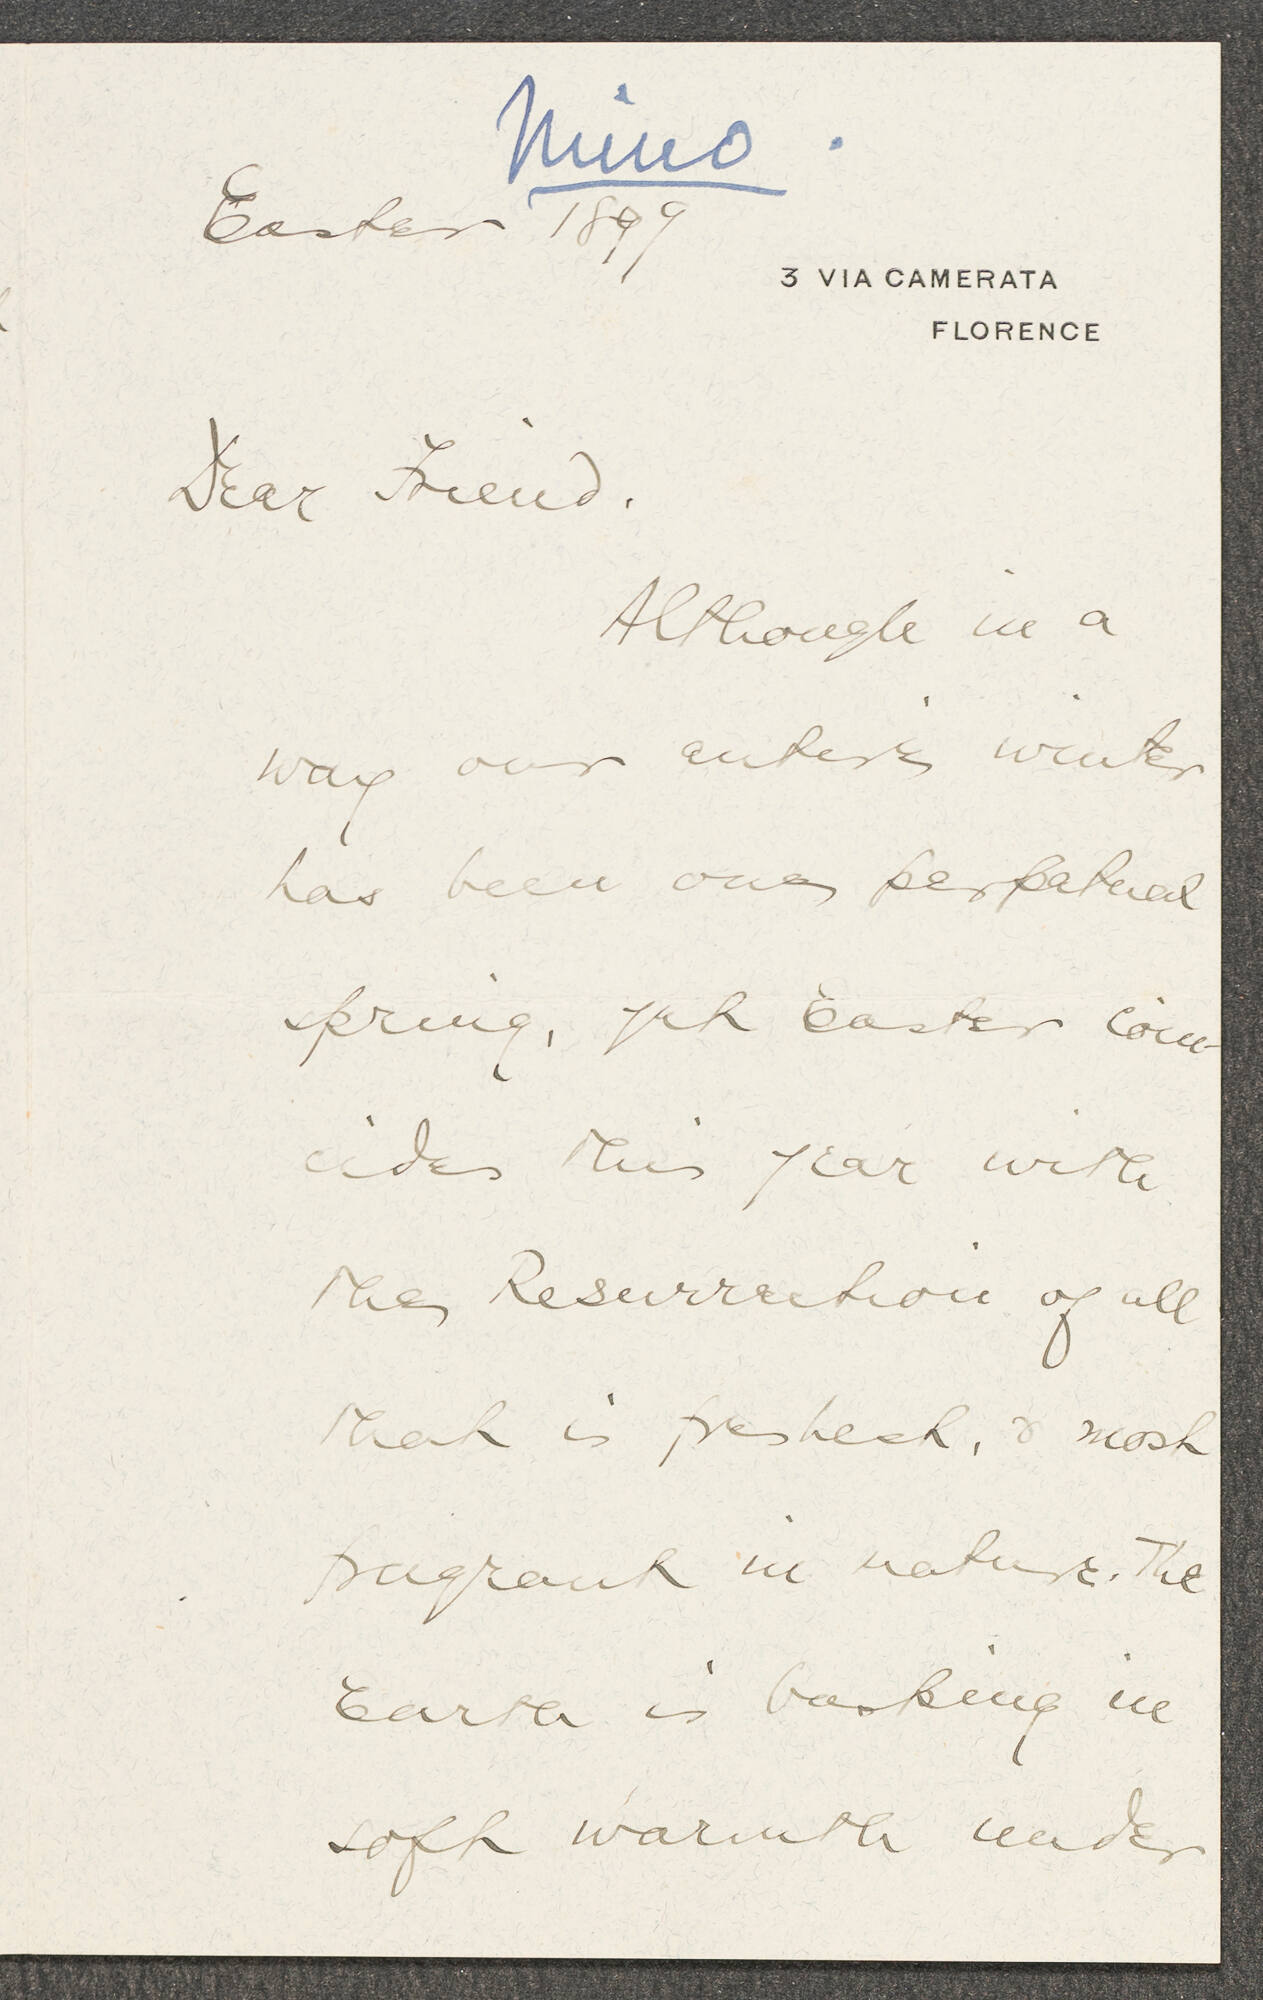 Mino.
Easter 1899
3 VIA CAMERATA
FLORENCE
Dear Friend.
Although in a
way our entire winter
has been one perpetual
spring, yet Easter coin-
cides this year with
the Resurrection of all
that is freshest, & most
fragrant in nature. The
Earth is basking in
soft warmth under